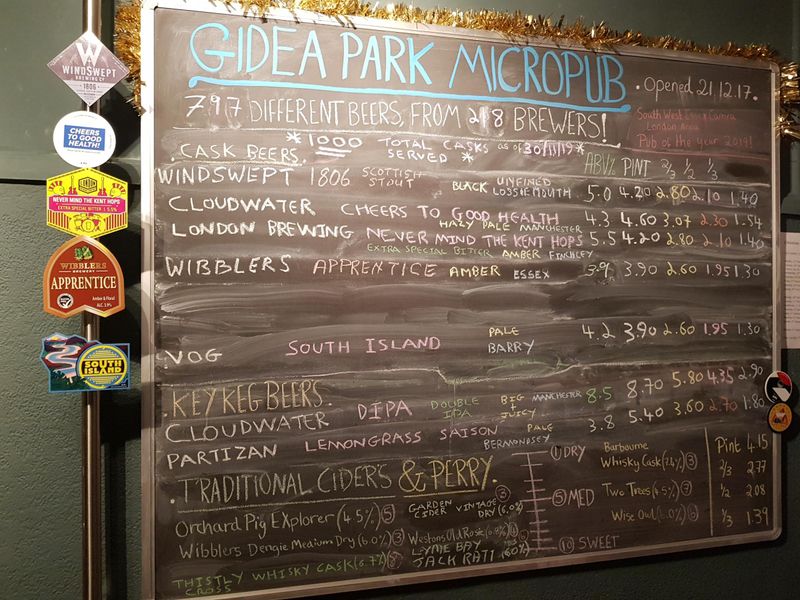 GIDEA PARK MICROPUB
. Opened 21.12.17.
797 DIFFERENT BEERS, FROM 218 BREWERS!
South West Essex Camra
London Area
Pub of the year 2019!
* 1000 TOTAL CASKS as of 30/11/19 *
SERVED *
. CASK BEERS.
ABV% PINT 2/3 1/2 1/3
WINDSWEPT 1806 SCOTTISH STOUT BLACK UNFINED LOSSIEMOUTH 5.0 4.20 2.80 2.10 1.40
CLOUDWATER CHEERS TO GOOD HEALTH 4.3 4.60 3.07 2.30 1.54
HAZY PALE MANCHESTER
LONDON BREWING NEVER MIND THE KENT HOPS 5.5 4.20 2.80 2.10 1.40
EXTRA SPECIAL BITTER AMBER FINCHLEY
WIBBLERS APPRENTICE AMBER ESSEX 3.9 3.90 2.60 1.95 1.30
VOG SOUTH ISLAND PALE BARRY 4.2 3.90 2.60 1.95 1.30
. KEY KEG BEERS.
CLOUDWATER DIPA DOUBLE IPA BIG + JUICY MANCHESTER 8.5 8.70 5.80 4.35 2.90
PARTIZAN LEMONGRASS SAISON PALE BERMONDSEY 3.8 5.40 3.60 2.70 1.80
. TRADITIONAL CIDERS & PERRY.
Orchard Pig Explorer (4.5%) (5)
GARDEN CIDER VINTAGE DRY (6.0%) (3)
Wibblers Dengie Medium Dry (6.0%) (3)
Westons Old Rosie
LYME BAY
JACK RATT (6.0%)
THISTLY CROSS WHISKY CASK (6.7%)
(1) DRY
(5) MED
(10) SWEET
Barbourne
Whisky Cask (7.4%) (3)
Two Trees (4.5%) (7)
Wise Owl (6.0%) (6)
Pint 4.15
2/3 2.77
1/2 2.08
1/3 1.39
W
WINDSWEPT
BREWING CO
1806
CHEERS TO GOOD HEALTH!
LONDON
NEVER MIND THE KENT HOPS
EXTRA SPECIAL BITTER | 5.5%
WIBBLERS
BREWERY
APPRENTICE
Amber & Floral
ALC. 3.9%
SOUTH ISLAND